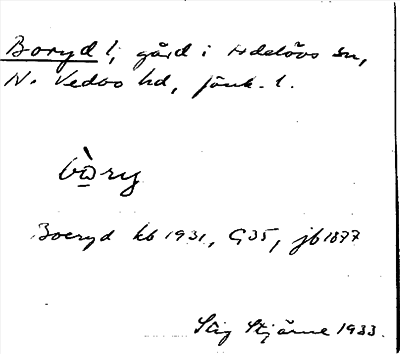 Boryd l; gård i Adelövs sn,
N. Vedbo hd, jönk. l.
bò̲ry
Boeryd kb 1931, G35, jb 1877
Stig Stjärne 1933.